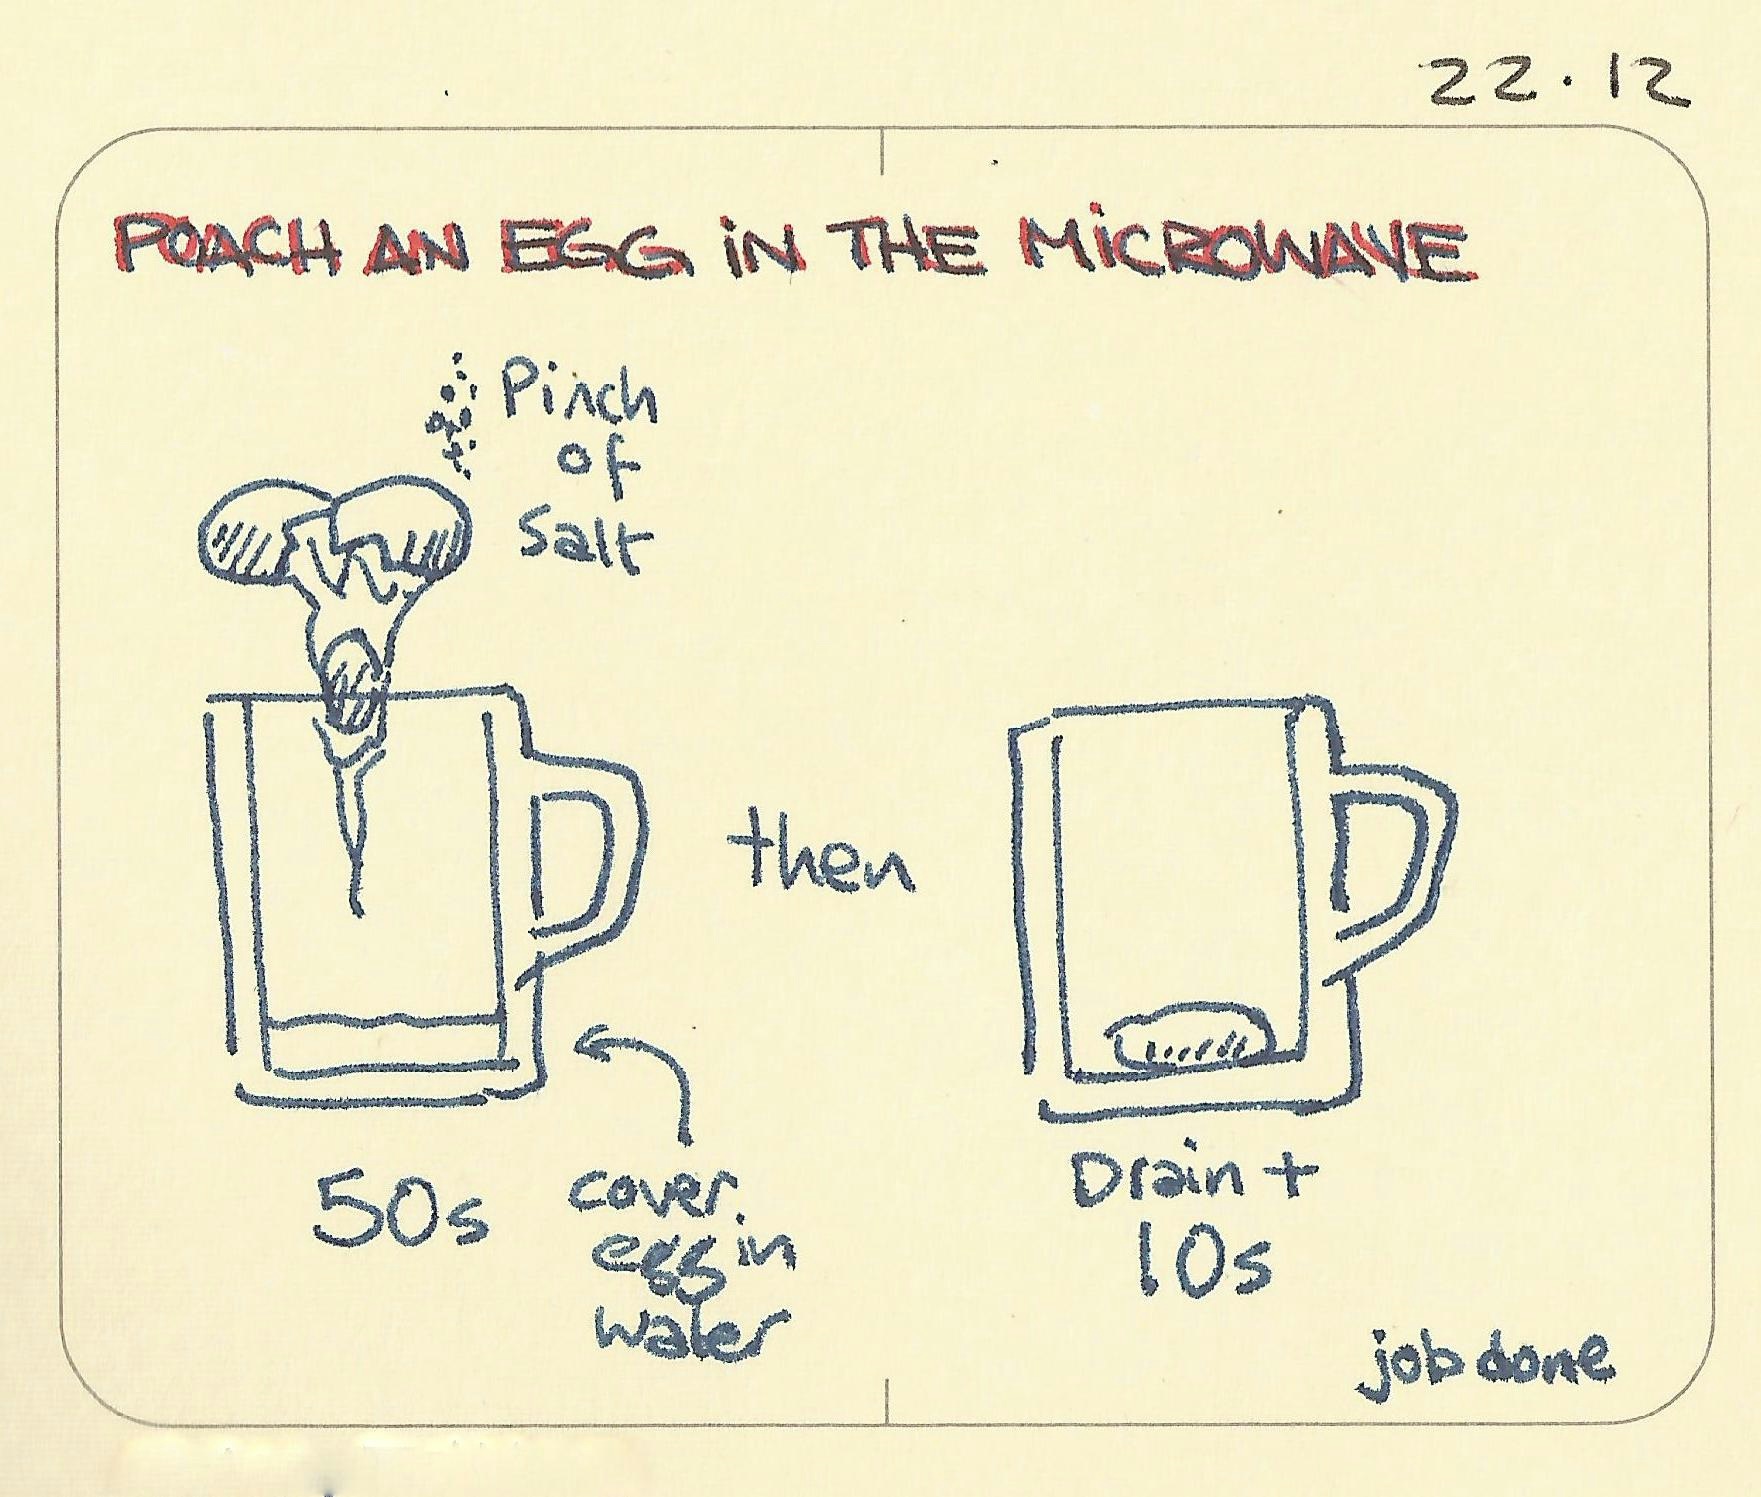 22.12
POACH AN EGG iN THE MiCROWAVE
Pinch
of
Salt
then
50s
cover
egg in
water
Drain +
10s
job done